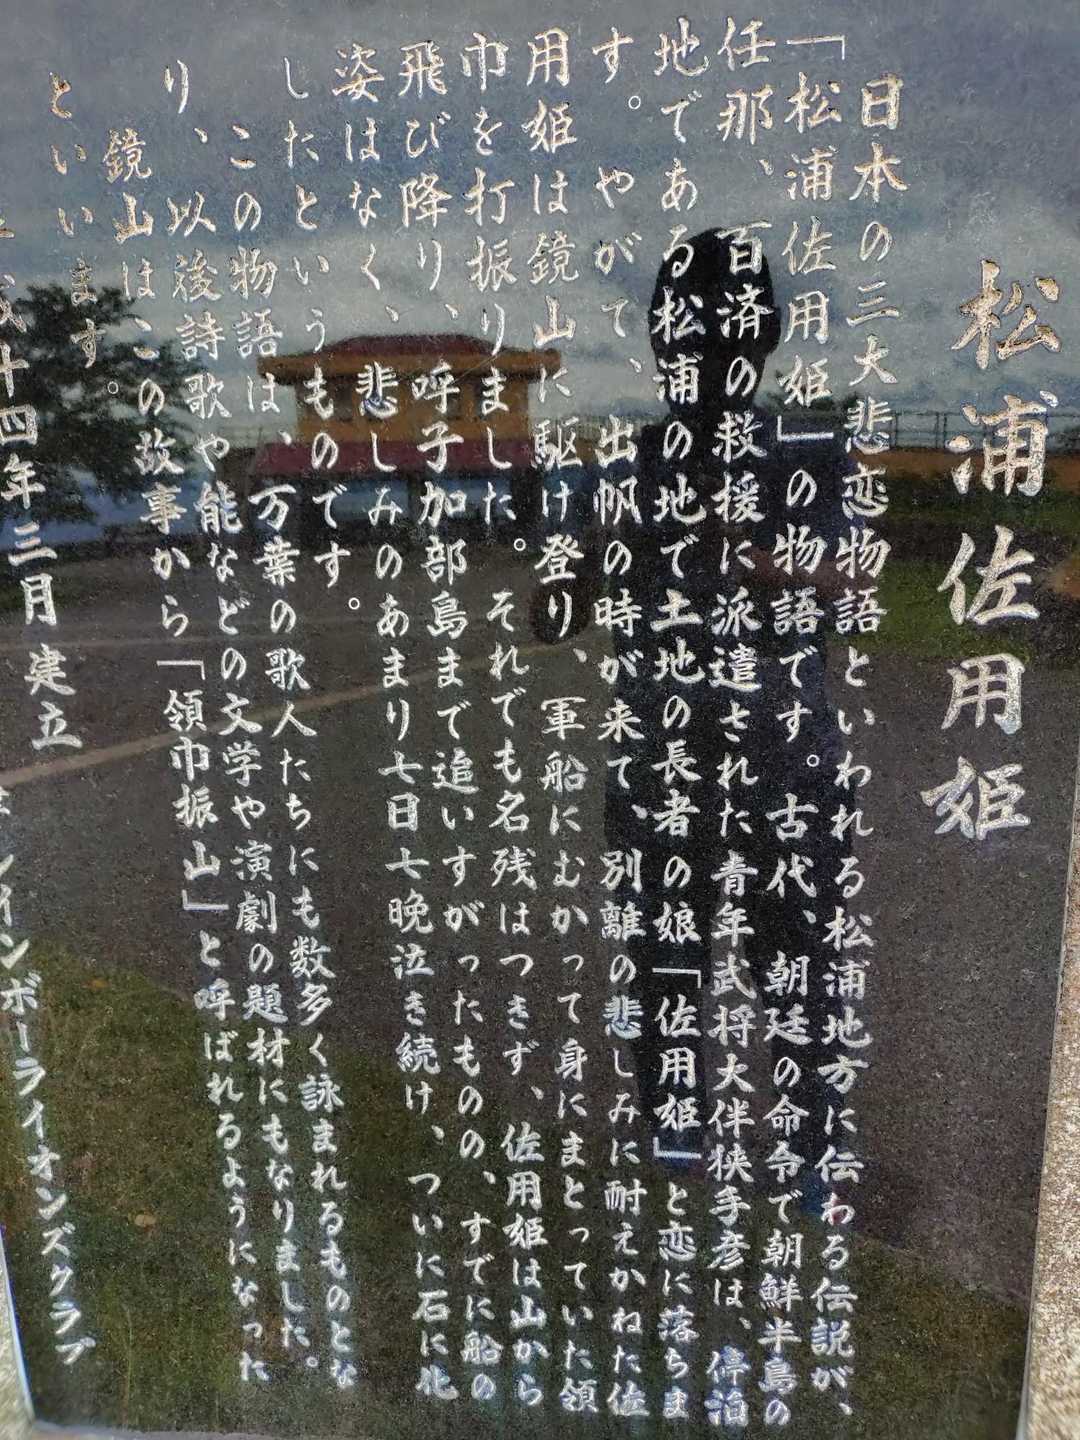 松浦佐用姫
日本の三大悲恋物語といわれる松浦地方に伝わる伝説が、
「松浦佐用姫」の物語です。古代、朝廷の命令で朝鮮半島の
任那、百済の救援に派遣された青年武将大伴狭手彦は、停泊
地である松浦の地で土地の長者の娘「佐用姫」と恋に落ちま
す。やがて、出帆の時が来て、別離の悲しみに耐えかねた佐
用姫は鏡山に駆け登り、軍船にむかって身にまとっていた領
巾を打振りました。それでも名残はつきず、佐用姫は山から
飛び降り、呼子加部島まで追いすがったものの、すでに船の
姿はなく、悲しみのあまり七日七晩泣き続け、ついに石に化
したというものです。
この物語は、万葉の歌人たちにも数多く詠まれるものとな
り、以後詩歌や能などの文学や演劇の題材にもなりました。
鏡山は、この故事から「領巾振山」と呼ばれるようになった
といいます。
成十四年三月建立
レインボーライオンズクラブ